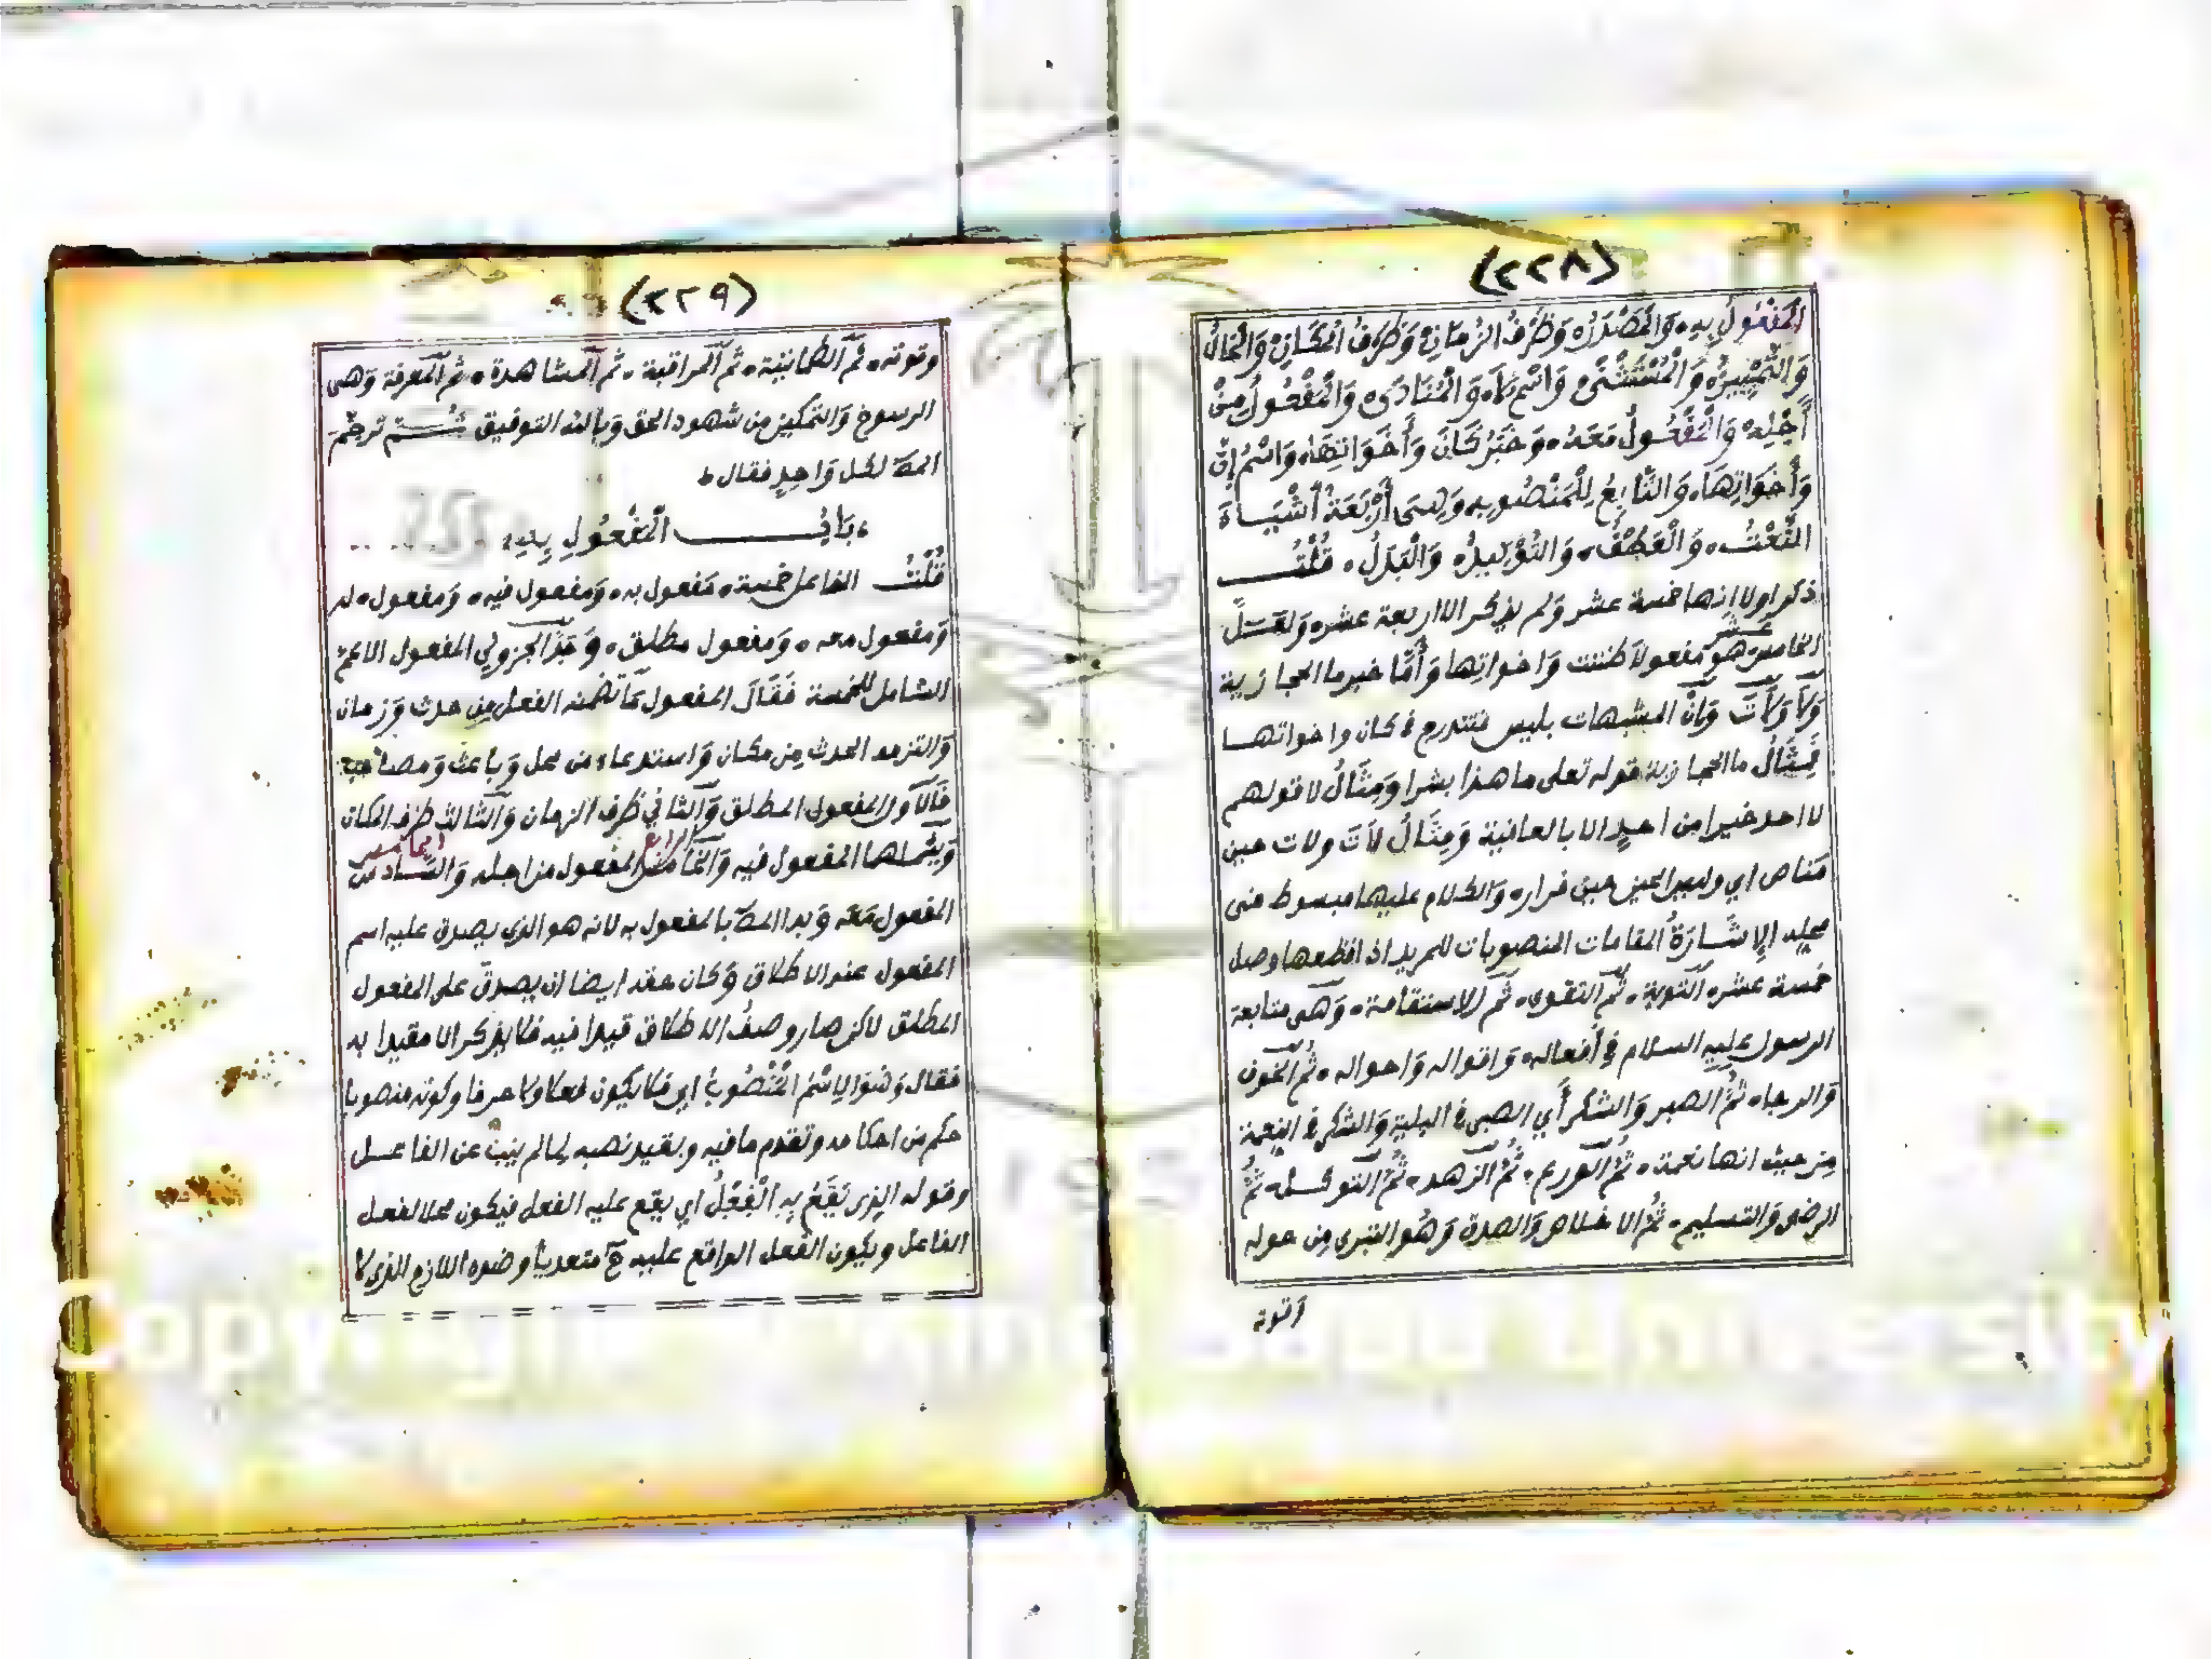 (٢٢٨)
الْمَفْعُولُ بِهِ، وَالْمَصْدَرُ، وَظَرْفُ الزَّمَانِ، وَظَرْفُ الْمَكَانِ، وَالْحَالُ
وَالتَّمْيِيزُ، وَالْمُسْتَثْنَى، وَاسْمُ لَا، وَالْمُنَادَى، وَالْمَفْعُولُ مِنْ
أَجْلِهِ، وَالْمَفْعُولُ مَعَهُ، وَخَبَرُ كَانَ وَأَخَوَاتِهَا، وَاسْمُ إِنَّ
وَأَخَوَاتِهَا، وَالتَّابِعُ لِلْمَنْصُوبِ، وَهِيَ أَرْبَعَةُ أَشْيَاءَ
النَّعْتُ، وَالْعَطْفُ، وَالتَّوْكِيدُ، وَالْبَدَلُ، قُلْتُ
ذكر اولا انها خمسة عشر وَلم يذكر الا اربعة عشر، وَلعَلَّ
الخامس عشر هُوَ مفعولا ظننت وَاخواتها وَأَمَّا خبر ما الحجازية
وَلَا وَلَاتَ وَإنْ المشبهات بليس فتندرج في كان واخواتها
فَمِثَالُ ما الحجازية قوله تعلى ما هذا بشرا وَمِثَالُ لا قولهم
لا احد خيرا من احدٍ الا بالعافية وَمِثَالُ لَاتَ ولات حين
مَناص اي وليس الحين حين فرار، وَالكلام عليها مبسوط في
محله الإِشَارَةُ المقامات المنصوبات للمريد اذا قطعها وصل
خمسة عشر، التوبة، ثُمَّ التقوى، ثُمَّ الاستقامة، وَهى متابعة
الرسول عليهِ السلام في أفعاله، وَاقواله وَاحواله، ثُمَّ الخوف
وَالرجاء، ثُمَّ الصبر وَالشكر أَي الصبر في البلية وَالشكر في النعمة
مِن حيث انها نعمة، ثُمَّ الورع، ثُمَّ الزهد، ثُمَّ التوكل، ثُمَّ
الرضى وَالتسليم، ثُمَّ الاخلاص وَالصدق وَهُو التبرى مِن حوله
وَقوته
(٢٢٩)
وقوته، ثُم الطمانينة، ثم المراقبة، ثم المشاهدة، ثم المعرفة وَهى
الرسوخ وَالتمكين من شهود الحق وَبالله التوفيق ثُـــمَّ تَرجمَ
المصَ لكل وَاحدٍ فقال،
، بَابُ الْمَفْعُولِ بِهِ،
قُلْتُ المفاعل خمسة، مَفعول به، وَمفعول فيه، وَمفعول له
وَمفعول معه، وَمفعول مطلق، وَحَدَّ الجزولي المفعول الاعم
الشامل للخمسة فَقَالَ المفعول مَا تضمنه الفعل مِن حدث وَزمان
وَالتزمه الحدث مِن مكان وَاستدعاه من محل وَباعث وَمصاحب
فَالاول المفعول المطلق وَالثاني ظرف الزمان وَالثالث ظرف المكان
وَيشملهما المفعول فيه وَالخامس الرابع المفعول من اجله وَالسادس الخامس
المفعول مَعَه وَبدا المصَ بالمفعول به لانه هو الذي يصدق عليه اسم
المفعول عند الاطلاق وَكان حقه ايضا ان يصدق على المفعول
المطلق لاكن صار وصفُ الاطلاق قيدا فيه فلا يذكر الا مقيدا به
فقال وَهُوَ الِاسْمُ الْمَنْصُوبُ اي فلا يكون فعلا ولا حرفا وكونه منصوبا
حكم من احكامه وتقدم ما فيه وبقيد نصبه لما لم ينب عن الفاعل
وقوله الذى يَقَعُ بِهِ الْفِعْلُ اي يقع عليه الفعل فيكون محلا لفعل
الفاعل ويكون الفعل الواقع عليه ح متعديا وضده اللازم الذى لا
Copyright © King Saud University